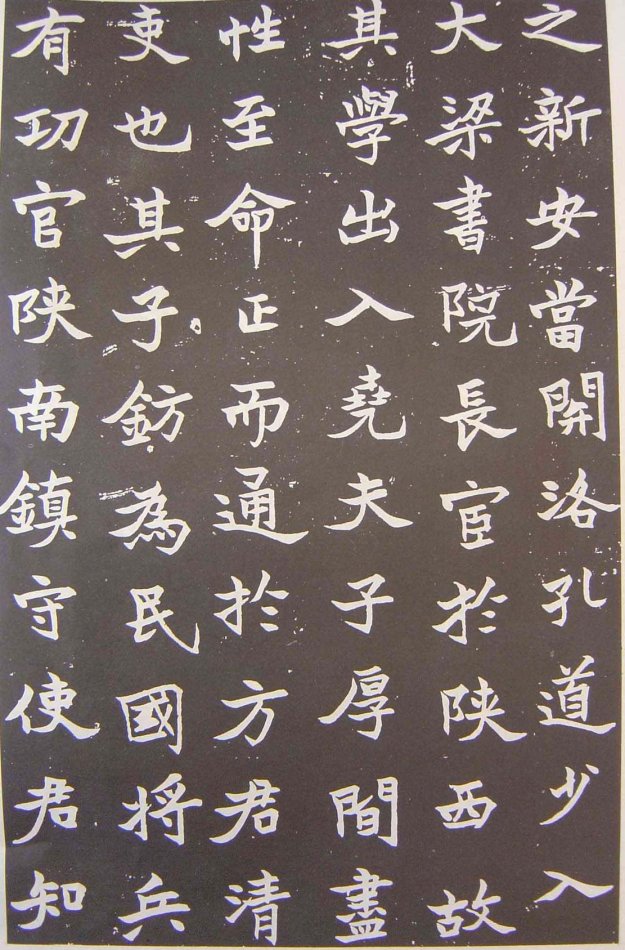 之新安當開洛孔道少入
大梁書院長宦於陝西故
其學出入堯夫子厚間盡
性至命正而通於方君清
吏也其子鈁為民國將兵
有功官陝南鎮守使君知